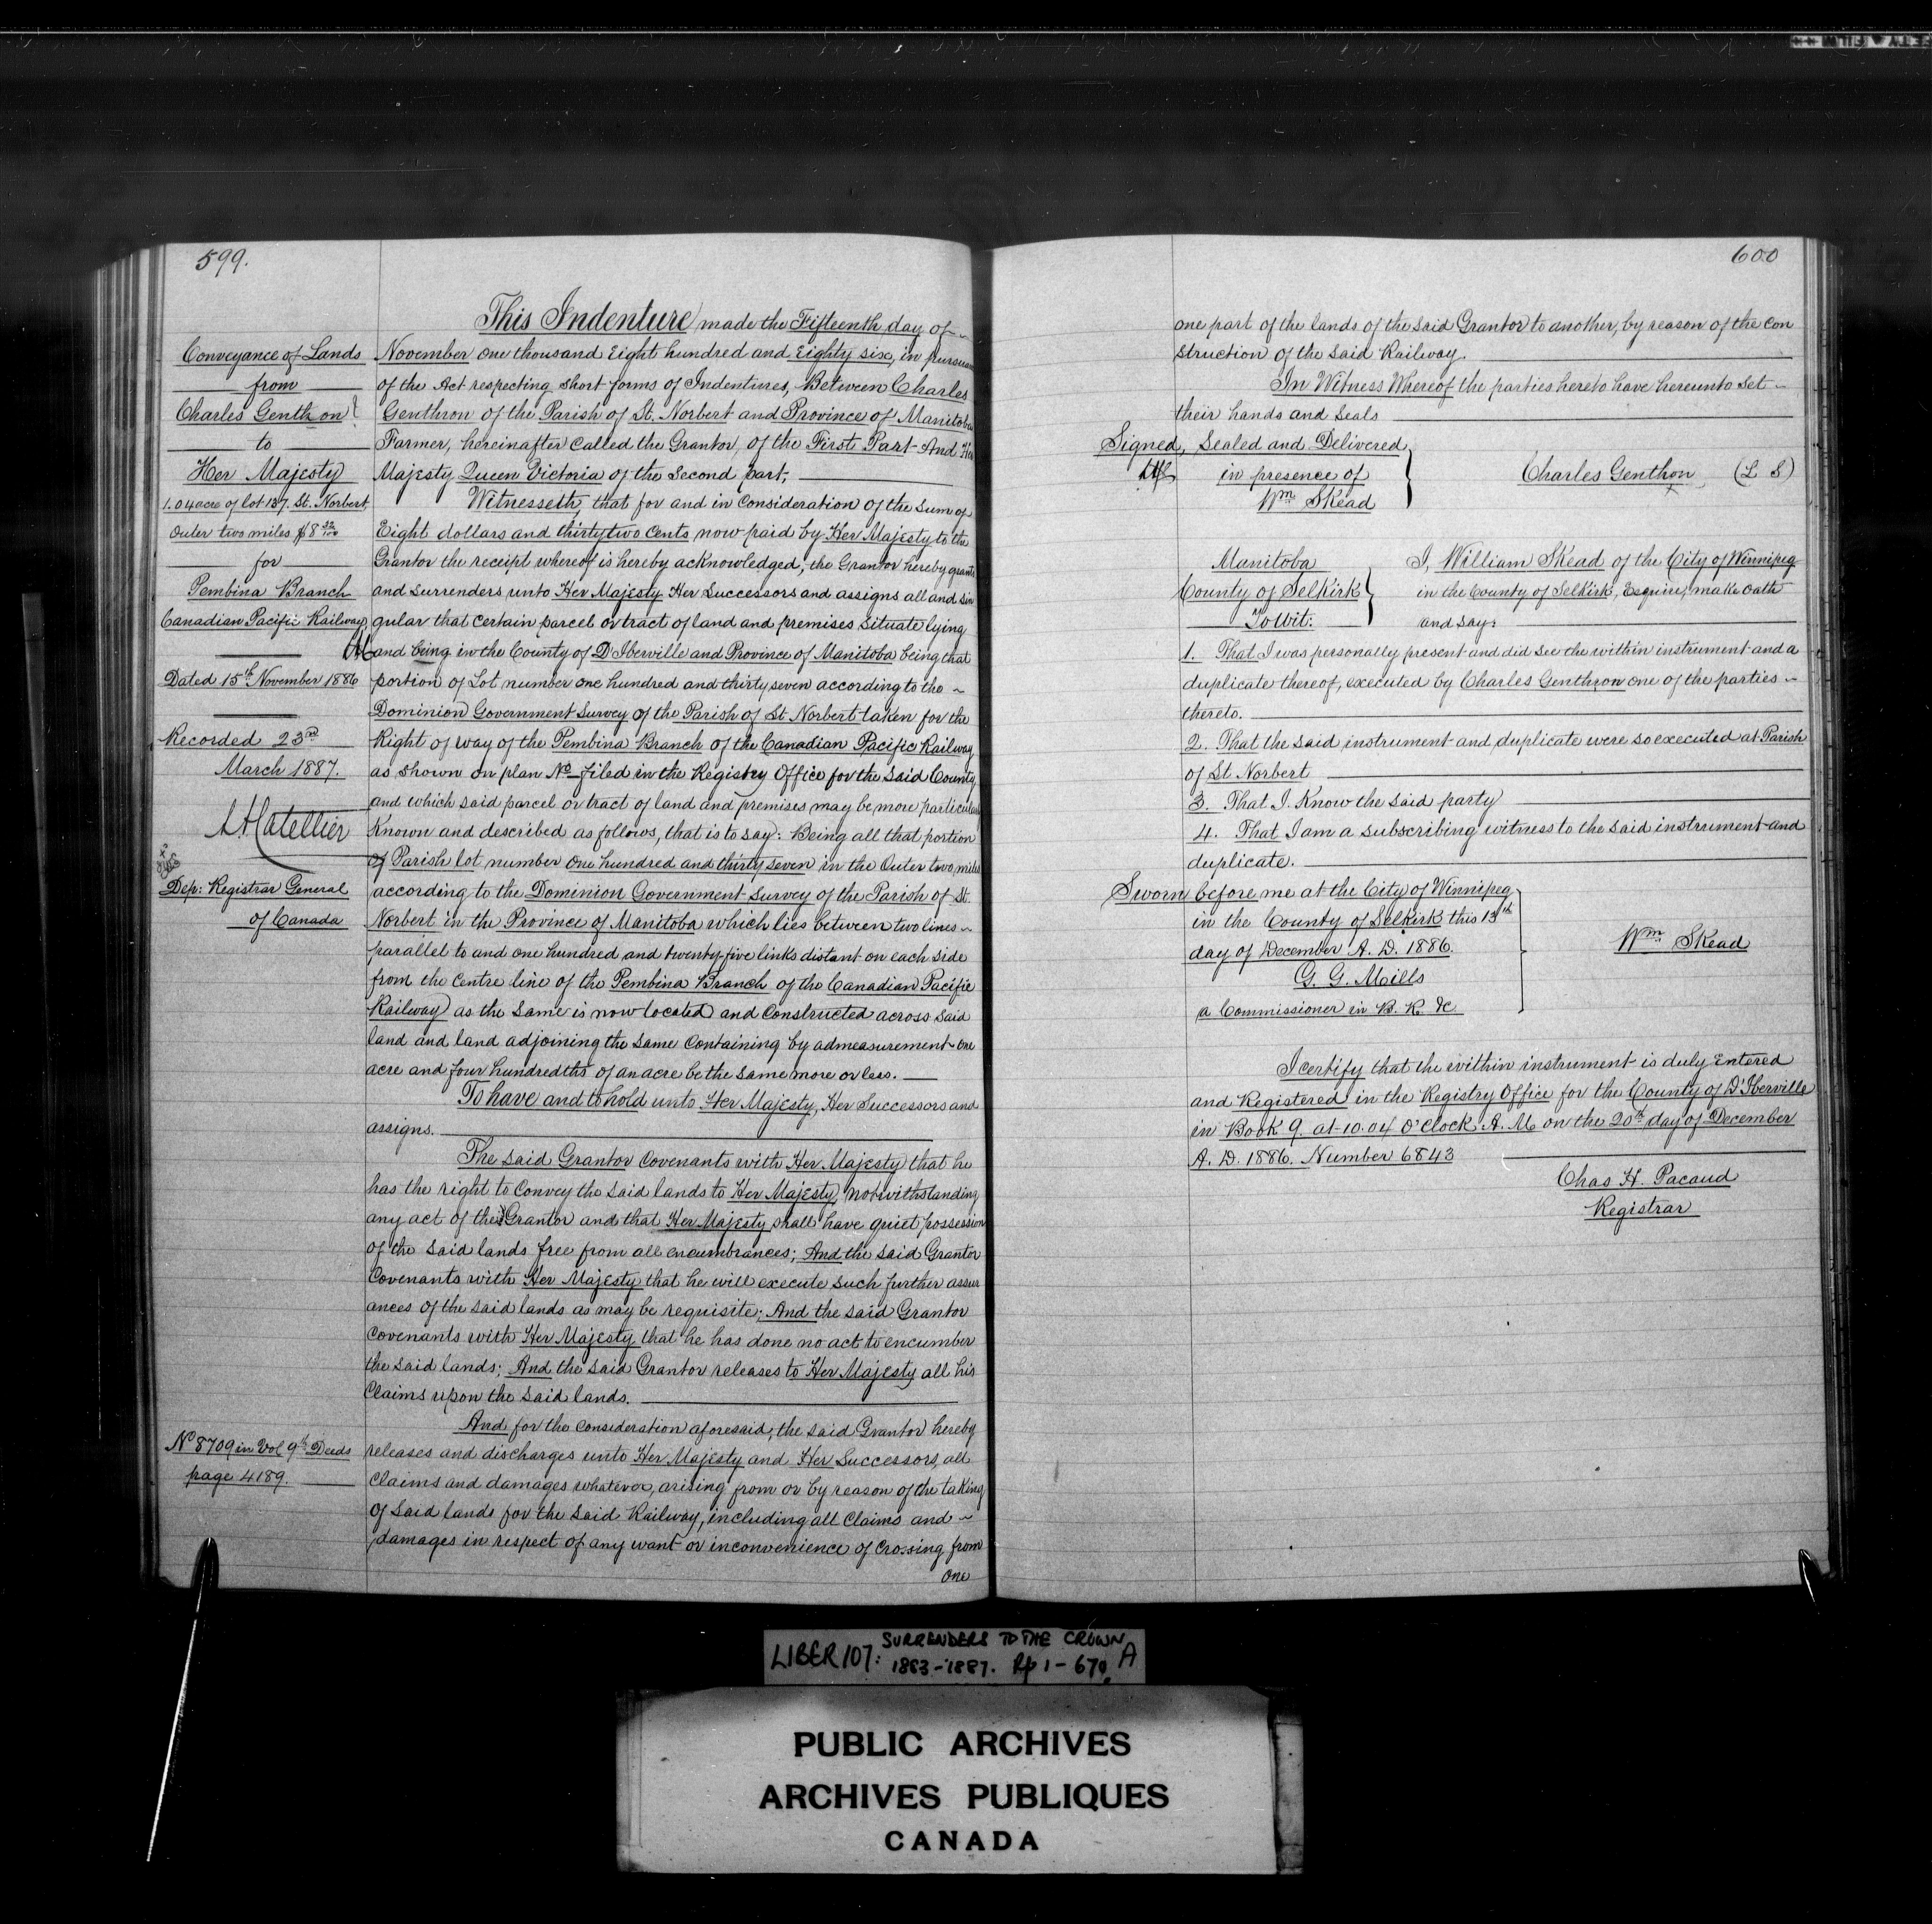 599.
Conveyance of Lands
from
Charles Genthon?
to
Her Majesty
1.04 acre of lot 137. St. Norbert
Outer two miles $8 32/100
for
Pembina Branch
Canadian Pacific Railway
Dated 15th November 1886
Recorded 23rd
March 1887.
LACatellier
Dep: Registrar General
of Canada
No 8709 in Vol 9th Deeds
page 4189.
This Indenture made the Fifteenth day of
November one thousand Eight hundred and Eighty six, in pursuan
of the Act respecting short forms of Indentures, Between Charles
Genthron of the Parish of St. Norbert and Province of Manitoba
Farmer, hereinafter called the Grantor, of the First Part And Her
Majesty Queen Victoria of the Second part,
Witnesseth, that for and in Consideration of the Sum of
Eight dollars and thirty two Cents now paid by Her Majesty to the
Grantor the receipt whereof is hereby acknowledged, the Grantor hereby grants
and Surrenders unto Her Majesty Her Successors and assigns all and sin
gular that Certain parcel or tract of land and premises Situate lying
and being in the County of D'Iberville and Province of Manitoba being that
portion of Lot number one hundred and thirty seven according to the
Dominion Government Survey of the Parish of St Norbert taken for the
Right of way of the Pembina Branch of the Canadian Pacific Railway
as shown on plan No filed in the Registry Office for the said County
and which said parcel or tract of land and premises may be more particular
Known and described as follows, that is to say: Being all that portion
of Parish lot number one hundred and thirty seven in the Outer two miles
according to the Dominion Government Survey of the Parish of St.
Norbert in the Province of Manitoba which lies between two lines
parallel to and one hundred and twenty-five links distant on each side
from the Centre line of the Pembina Branch of the Canadian Pacific
Railway as the Same is now located and Constructed across said
land and land adjoining the same Containing by admeasurement one
acre and four hundredths of an acre be the same more or less.
To have and to hold unto Her Majesty, Her Successors and
assigns.
The Said Grantor Covenants with Her Majesty that he
has the right to Convey the said lands to Her Majesty, notwithstanding
any act of the Grantor and that Her Majesty shall have quiet possession
of the said lands free from all encumbrances; And the said Grantor
Covenants with Her Majesty that he will execute such further assur
ances of the said lands as may be requisite; And the said Grantor
Covenants with Her Majesty that he has done no act to encumber
the said lands; And the said Grantor releases to Her Majesty all his
Claims upon the said lands.
And for the Consideration aforesaid, the said Grantor hereby
releases and discharges unto Her Majesty and Her Successors, all
Claims and damages whatever, arising from or by reason of the taking
of said lands for the said Railway, including all Claims and
damages in respect of any want or inconvenience of Crossing from
one
600
one part of the lands of the said Grantor to another, by reason of the con
struction of the said Railway.
In Witness Whereof the parties hereto have hereunto Set
their hands and Seals
Signed, Sealed and Delivered
in presence of
Wm Skead
Charles Genthon (L S)
Manitoba
County of Selkirk
To Wit:
I, William Skead of the City of Winnipeg
in the County of Selkirk, Esquire, make Oath
and Say:
1. That I was personally present and did see the within instrument and a
duplicate thereof, executed by Charles Genthron one of the parties
thereto.
2. That the said instrument and duplicate were so executed at Parish
of St Norbert
3. That I Know the said party
4. That I am a subscribing witness to the said instrument and
duplicate.
Sworn before me at the City of Winnipeg
in the County of Selkirk this 13th
day of December A. D. 1886.
G. G. Mills
a Commissioner in B. R. &c
Wm Skead
I certify that the within instrument is duly Entered
and Registered in the Registry Office for the County of D'Iberville
in Book 9. at 10.04 O'Clock A. M. on the 20th day of December
A. D. 1886. Number 6843
Chas H. Pacaud
Registrar
LIBER 107: SURRENDERS TO THE CROWN
1883-1887. Pp 1-670 A
PUBLIC ARCHIVES
ARCHIVES PUBLIQUES
CANADA